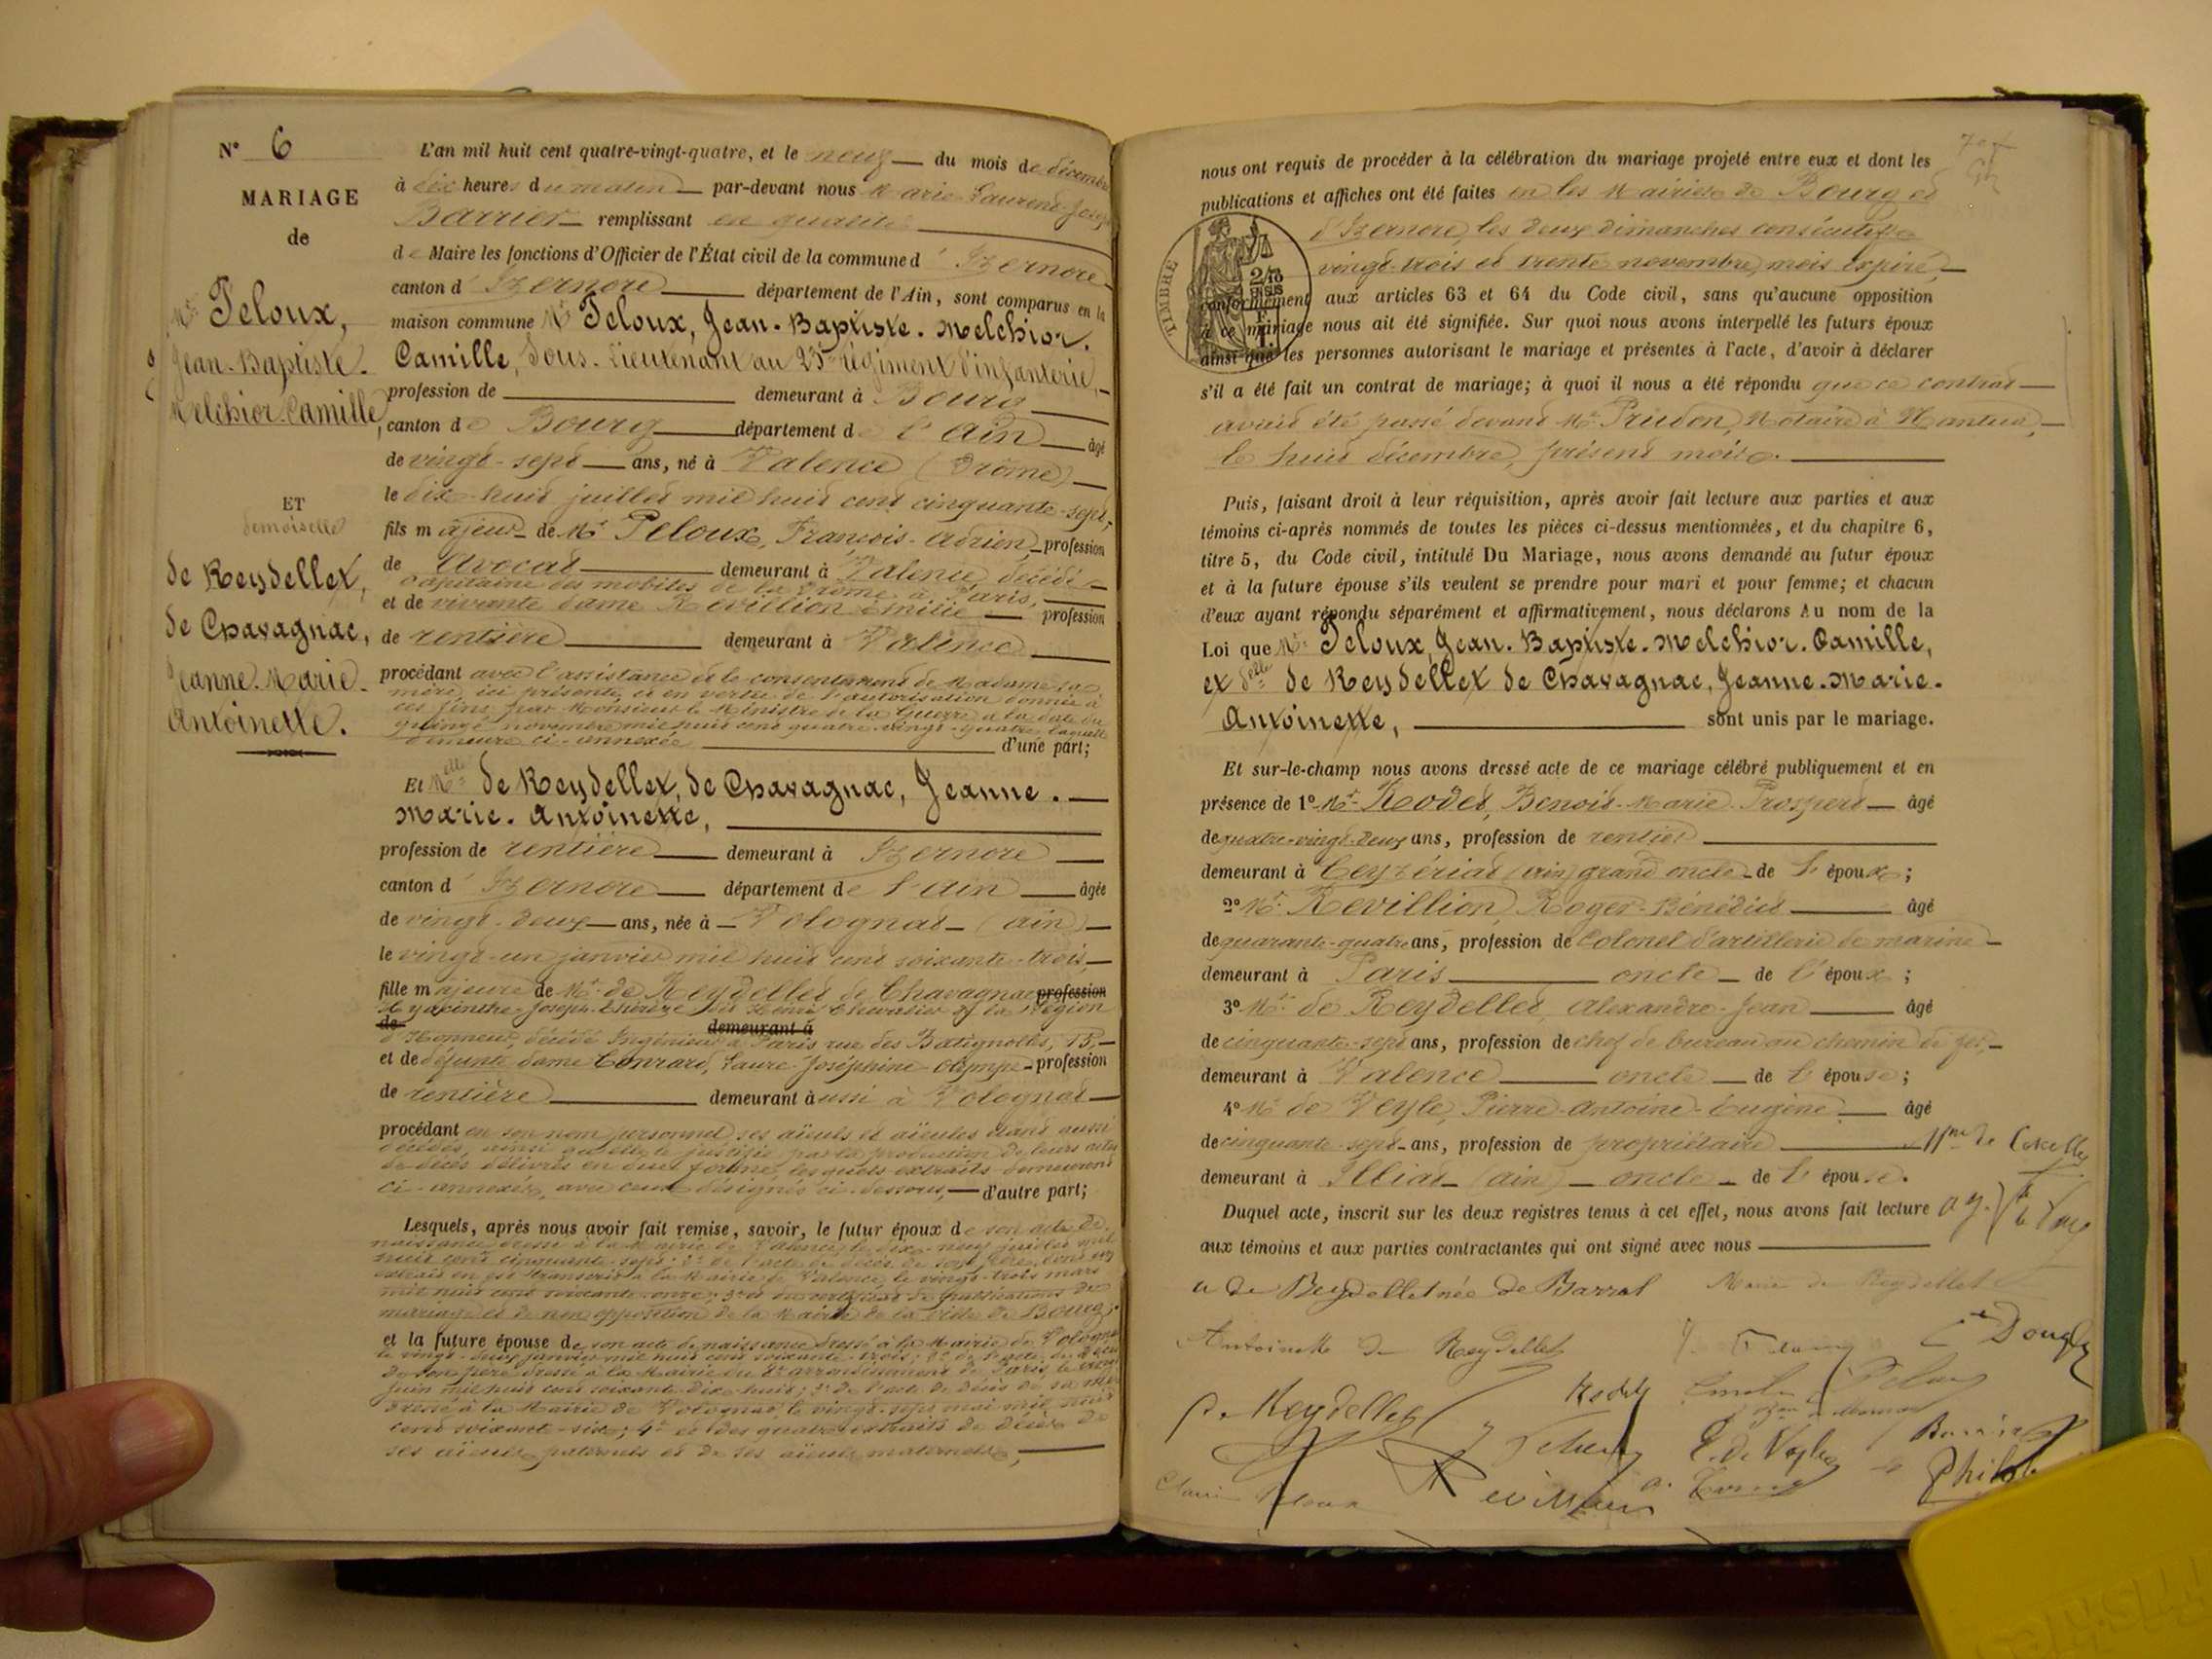 N° 6
MARIAGE
de
Mr Peloux,
Jean-Baptiste-
Melchior-Camille,
ET
demoiselle
de Reydellet,
de Chavagnac,
Jeanne-Marie-
Antoinette.
L'an mil huit cent quatre-vingt-quatre, et le neuf du mois de décembre
à dix heures du matin par-devant nous Marie-Laurent-Joseph
Barrier remplissant en qualité
de Maire les fonctions d'Officier de l'État civil de la commune d'Izernore
canton d'Izernore département de l'Ain, sont comparus en la
maison commune Mr Peloux, Jean-Baptiste-Melchior-
Camille, Sous-Lieutenant au 23e régiment d'infanterie,
profession de demeurant à Bourg
canton de Bourg département de l'Ain âgé
de vingt-sept ans, né à Valence (Drôme)
le dix-huit juillet mil huit cent cinquante-sept,
fils majeur de Mr Peloux, François-Adrien, profession
de Avocat demeurant à Valence, décédé
capitaine des mobiles de la Drôme à Paris,
et de vivante dame Revillion Emilie profession
de rentière demeurant à Valence
procédant avec l'assistance et le consentement de Madame sa
mère, ici présente, et en vertu de l'autorisation donnée à
ces fins par Monsieur le Ministre de la Guerre à la date du
quinze novembre mil huit cent quatre-vingt-quatre, laquelle
demeure ci-annexée d'une part;
Et Melle de Reydellet, de Chavagnac, Jeanne-
Marie-Antoinette,
profession de rentière demeurant à Izernore
canton d'Izernore département de l'Ain âgée
de vingt-deux ans, née à Volognat (Ain)
le vingt-un janvier mil huit cent soixante-trois,
fille majeure de Mr de Reydellet de Chavagnac profession
Hyacinthe-Joseph chevalier de la Légion
de demeurant à
d'Honneur, décédé Ingénieur à Paris rue des Batignolles, 15,
et de défunte dame Conrard, Laure-Joséphine-Olympe profession
de rentière demeurant aussi à Volognat
procédant en son nom personnel, ses aïeuls et aïeules étant aussi
décédés, ainsi qu'elle le justifie par la production de leurs actes
de décès délivrés en due forme, lesquels extraits demeurent
ci-annexés, avec ceux désignés ci-dessous, d'autre part;
Lesquels, après nous avoir fait remise, savoir, le futur époux de son acte de
naissance dressé à la Mairie de Valence, le dix-neuf juillet mil
huit cent cinquante-sept; 2° de l'acte de décès de son père, dont un
extrait en est transcrit à la Mairie de Valence, le vingt-trois mars
mil huit cent soixante-onze; 3° et du certificat de publications de
mariage et de non opposition de la Mairie de la ville de Bourg;
et la future épouse de son acte de naissance dressé à la Mairie de Volognat
le vingt-deux janvier mil huit cent soixante-trois; 2° de l'acte de décès
de son père dressé à la Mairie du arrondissement de Paris, le
juin mil huit cent soixante-dix-huit; 3° de l'acte de décès de sa mère
dressé à la Mairie de Volognat, le vingt-sept mai mil huit
cent soixante-six; 4° et des quatre extraits de décès de
ses aïeuls paternels et de ses aïeuls maternels,
nous ont requis de procéder à la célébration du mariage projeté entre eux et dont les
publications et affiches ont été faites en les Mairies de Bourg et
d'Izernore, les deux dimanches consécutifs
vingt-trois et trente novembre, mois expiré,
TIMBRE
conformément aux articles 63 et 64 du Code civil, sans qu'aucune opposition
à ce mariage nous ait été signifiée. Sur quoi nous avons interpellé les futurs époux
ainsi que les personnes autorisant le mariage et présentes à l'acte, d'avoir à déclarer
s'il a été fait un contrat de mariage; à quoi il nous a été répondu que ce contrat
avait été passé devant Me Prudon, Notaire à Nantua,
le huit décembre, présent mois.
Puis, faisant droit à leur réquisition, après avoir fait lecture aux parties et aux
témoins ci-après nommés de toutes les pièces ci-dessus mentionnées, et du chapitre 6,
titre 5, du Code civil, intitulé Du Mariage, nous avons demandé au futur époux
et à la future épouse s'ils veulent se prendre pour mari et pour femme; et chacun
d'eux ayant répondu séparément et affirmativement, nous déclarons Au nom de la
Loi que Mr Peloux, Jean-Baptiste-Melchior-Camille,
et delle de Reydellet de Chavagnac, Jeanne-Marie-
Antoinette, sont unis par le mariage.
Et sur-le-champ nous avons dressé acte de ce mariage célébré publiquement et en
présence de 1° Mr Rodet, Benoît-Marie-Prosper âgé
de quatre-vingt-deux ans, profession de rentier
demeurant à Ceyzériat (Ain) grand oncle de l'époux;
2° Mr Revillion, Roger-Bénédict âgé
de quarante-quatre ans, profession de Colonel d'artillerie de marine
demeurant à Paris oncle de l'époux;
3° Mr de Reydellet, Alexandre-Jean âgé
de cinquante-sept ans, profession de chef de bureau au chemin de fer,
demeurant à Valence oncle de l'épouse;
4° Mr de Veyle, Pierre-Antoine-Eugène âgé
de cinquante-sept ans, profession de propriétaire
demeurant à Illiat (Ain) oncle de l'épouse.
Duquel acte, inscrit sur les deux registres tenus à cet effet, nous avons fait lecture
aux témoins et aux parties contractantes qui ont signé avec nous
de Reydellet née de Barral Marie de Reydellet
Antoinette de Reydellet
de Reydellet
E. de Veyle
Peloux